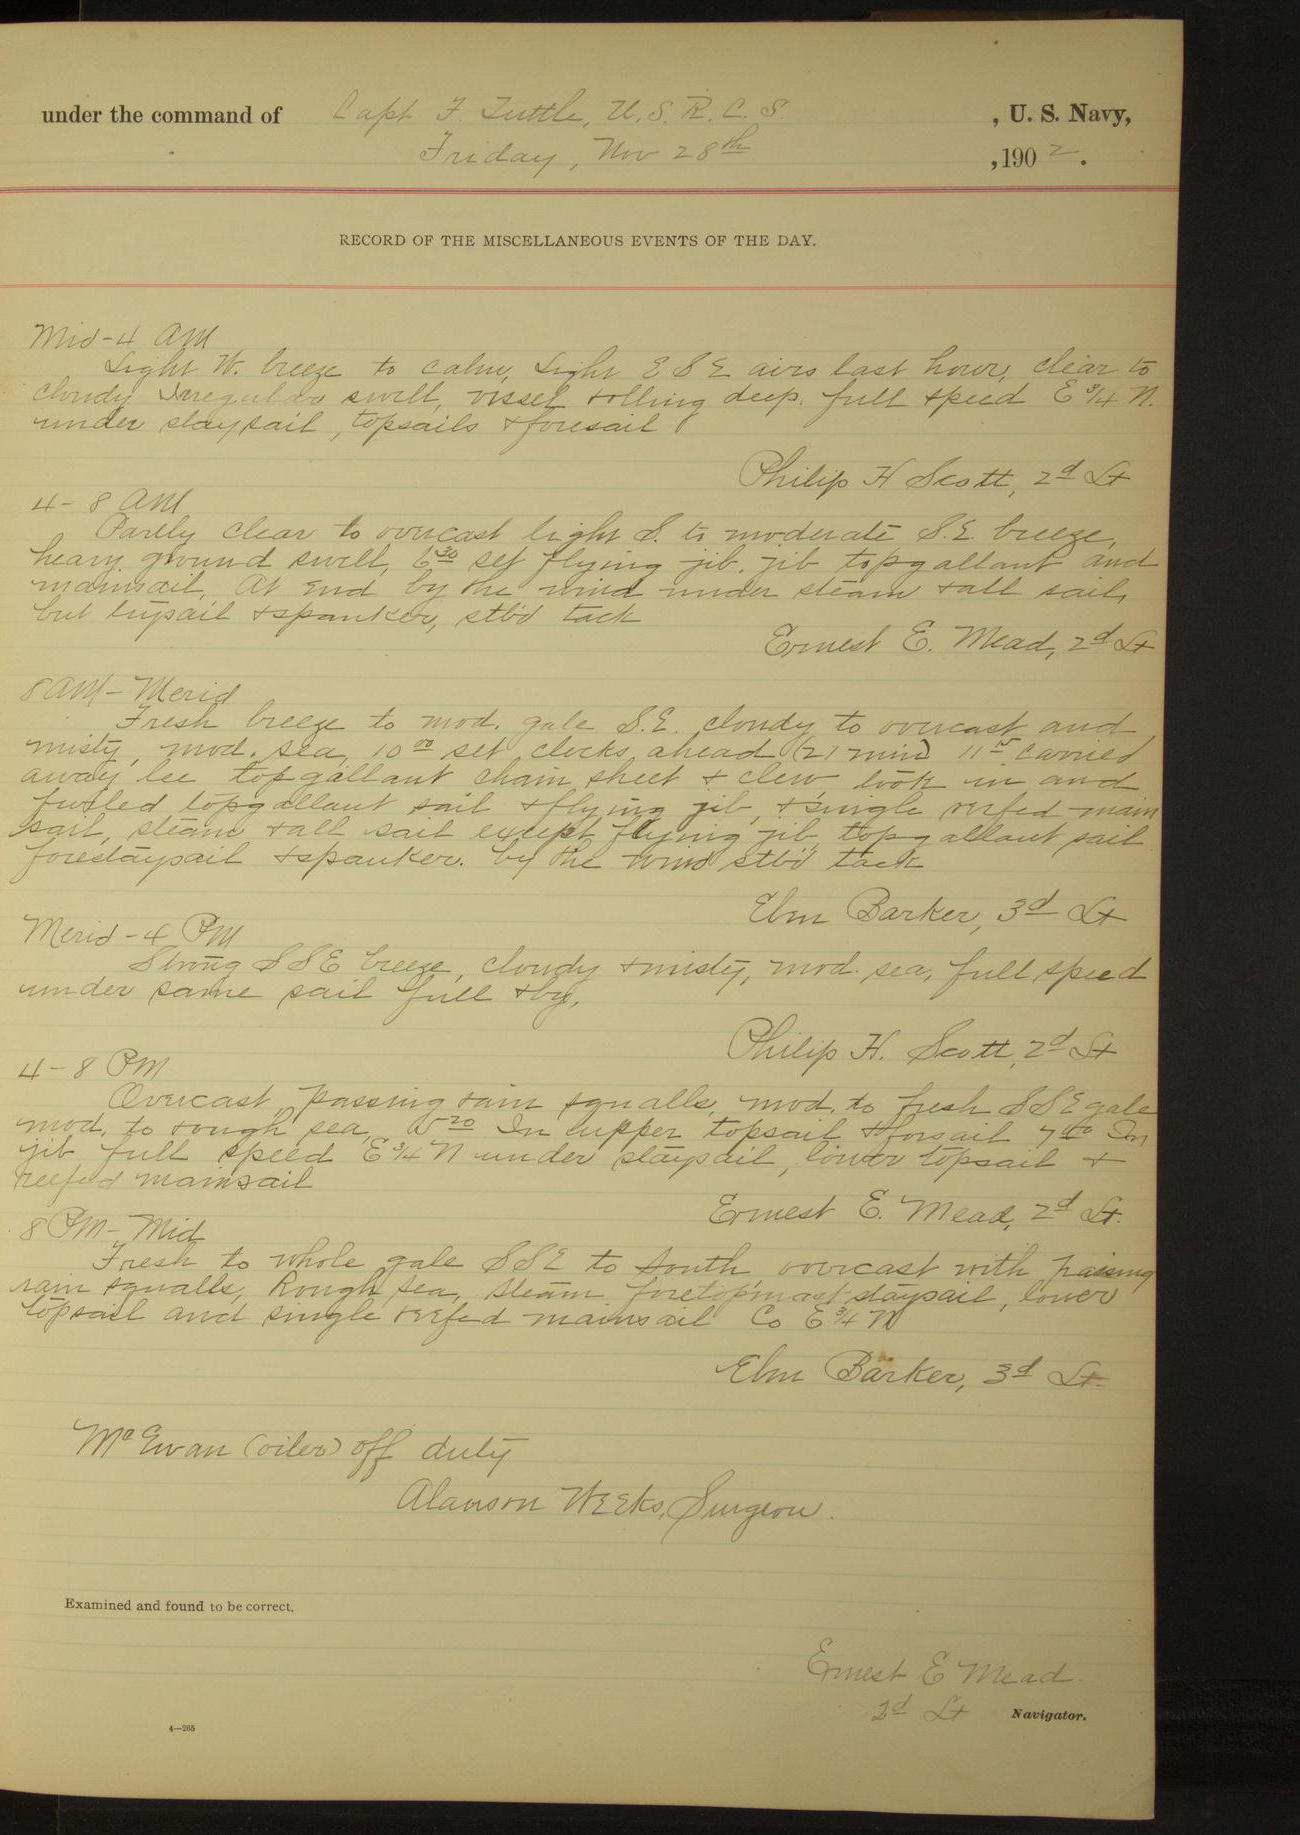 under the command of Capt F. Tuttle, U.S.R.C.S. , U. S. Navy,
Friday, Nov 28th , 1902.
RECORD OF THE MISCELLANEOUS EVENTS OF THE DAY.
Mid-4 AM
Light W. breeze to calm, Light ESE airs last hour, clear to
cloudy Irregular swell, vessel rolling deep. full speed E 3/4 N.
under staysail, topsails + foresail
Philip H Scott, 2d Lt
4-8 AM
Partly clear to overcast light S. to moderate S.E. breeze,
heavy ground swell, 6 30 set flying jib, jib topgallant and
mainsail. At end by the wind under steam + all sail,
but trysail + spanker, stbd tack
Ernest E. Mead, 2d Lt
8 AM - Merid
Fresh breeze to mod. gale S.E. cloudy to overcast and
misty, mod. sea, 10 00 set clocks ahead (21 min) 11 15 carried
away lee topgallant chain sheet + clew took in and
furled topgallant sail + flying jib, + single reefed main
sail, steam + all sail except flying jib, topgallant sail
forestaysail + spanker. by the wind stbd tack
Elm Barker, 3d Lt
Merid-4 PM
Strong SSE breeze, cloudy + misty, mod. sea, full speed
under same sail full + by,
Philip H. Scott, 2d Lt
4-8 PM
Overcast, passing rain squalls, mod. to fresh SSE gale
mod. to rough sea, 5 20 In upper topsail + forsail 7 40 In
jib full speed E 3/4 N under staysail, lower topsail +
reefed mainsail
Ernest E. Mead, 2d Lt.
8 PM-Mid
Fresh to whole gale SSE to South overcast with passing
rain squalls, Rough sea, steam foretopmast staysail, lower
topsail and single reefed mainsail Co E 3/4 N
Elm Barker, 3d Lt.
McEwan (oiler) off duty
Alanson Weeks, Surgeon.
Examined and found to be correct.
Ernest E Mead
2d Lt Navigator.
4—265